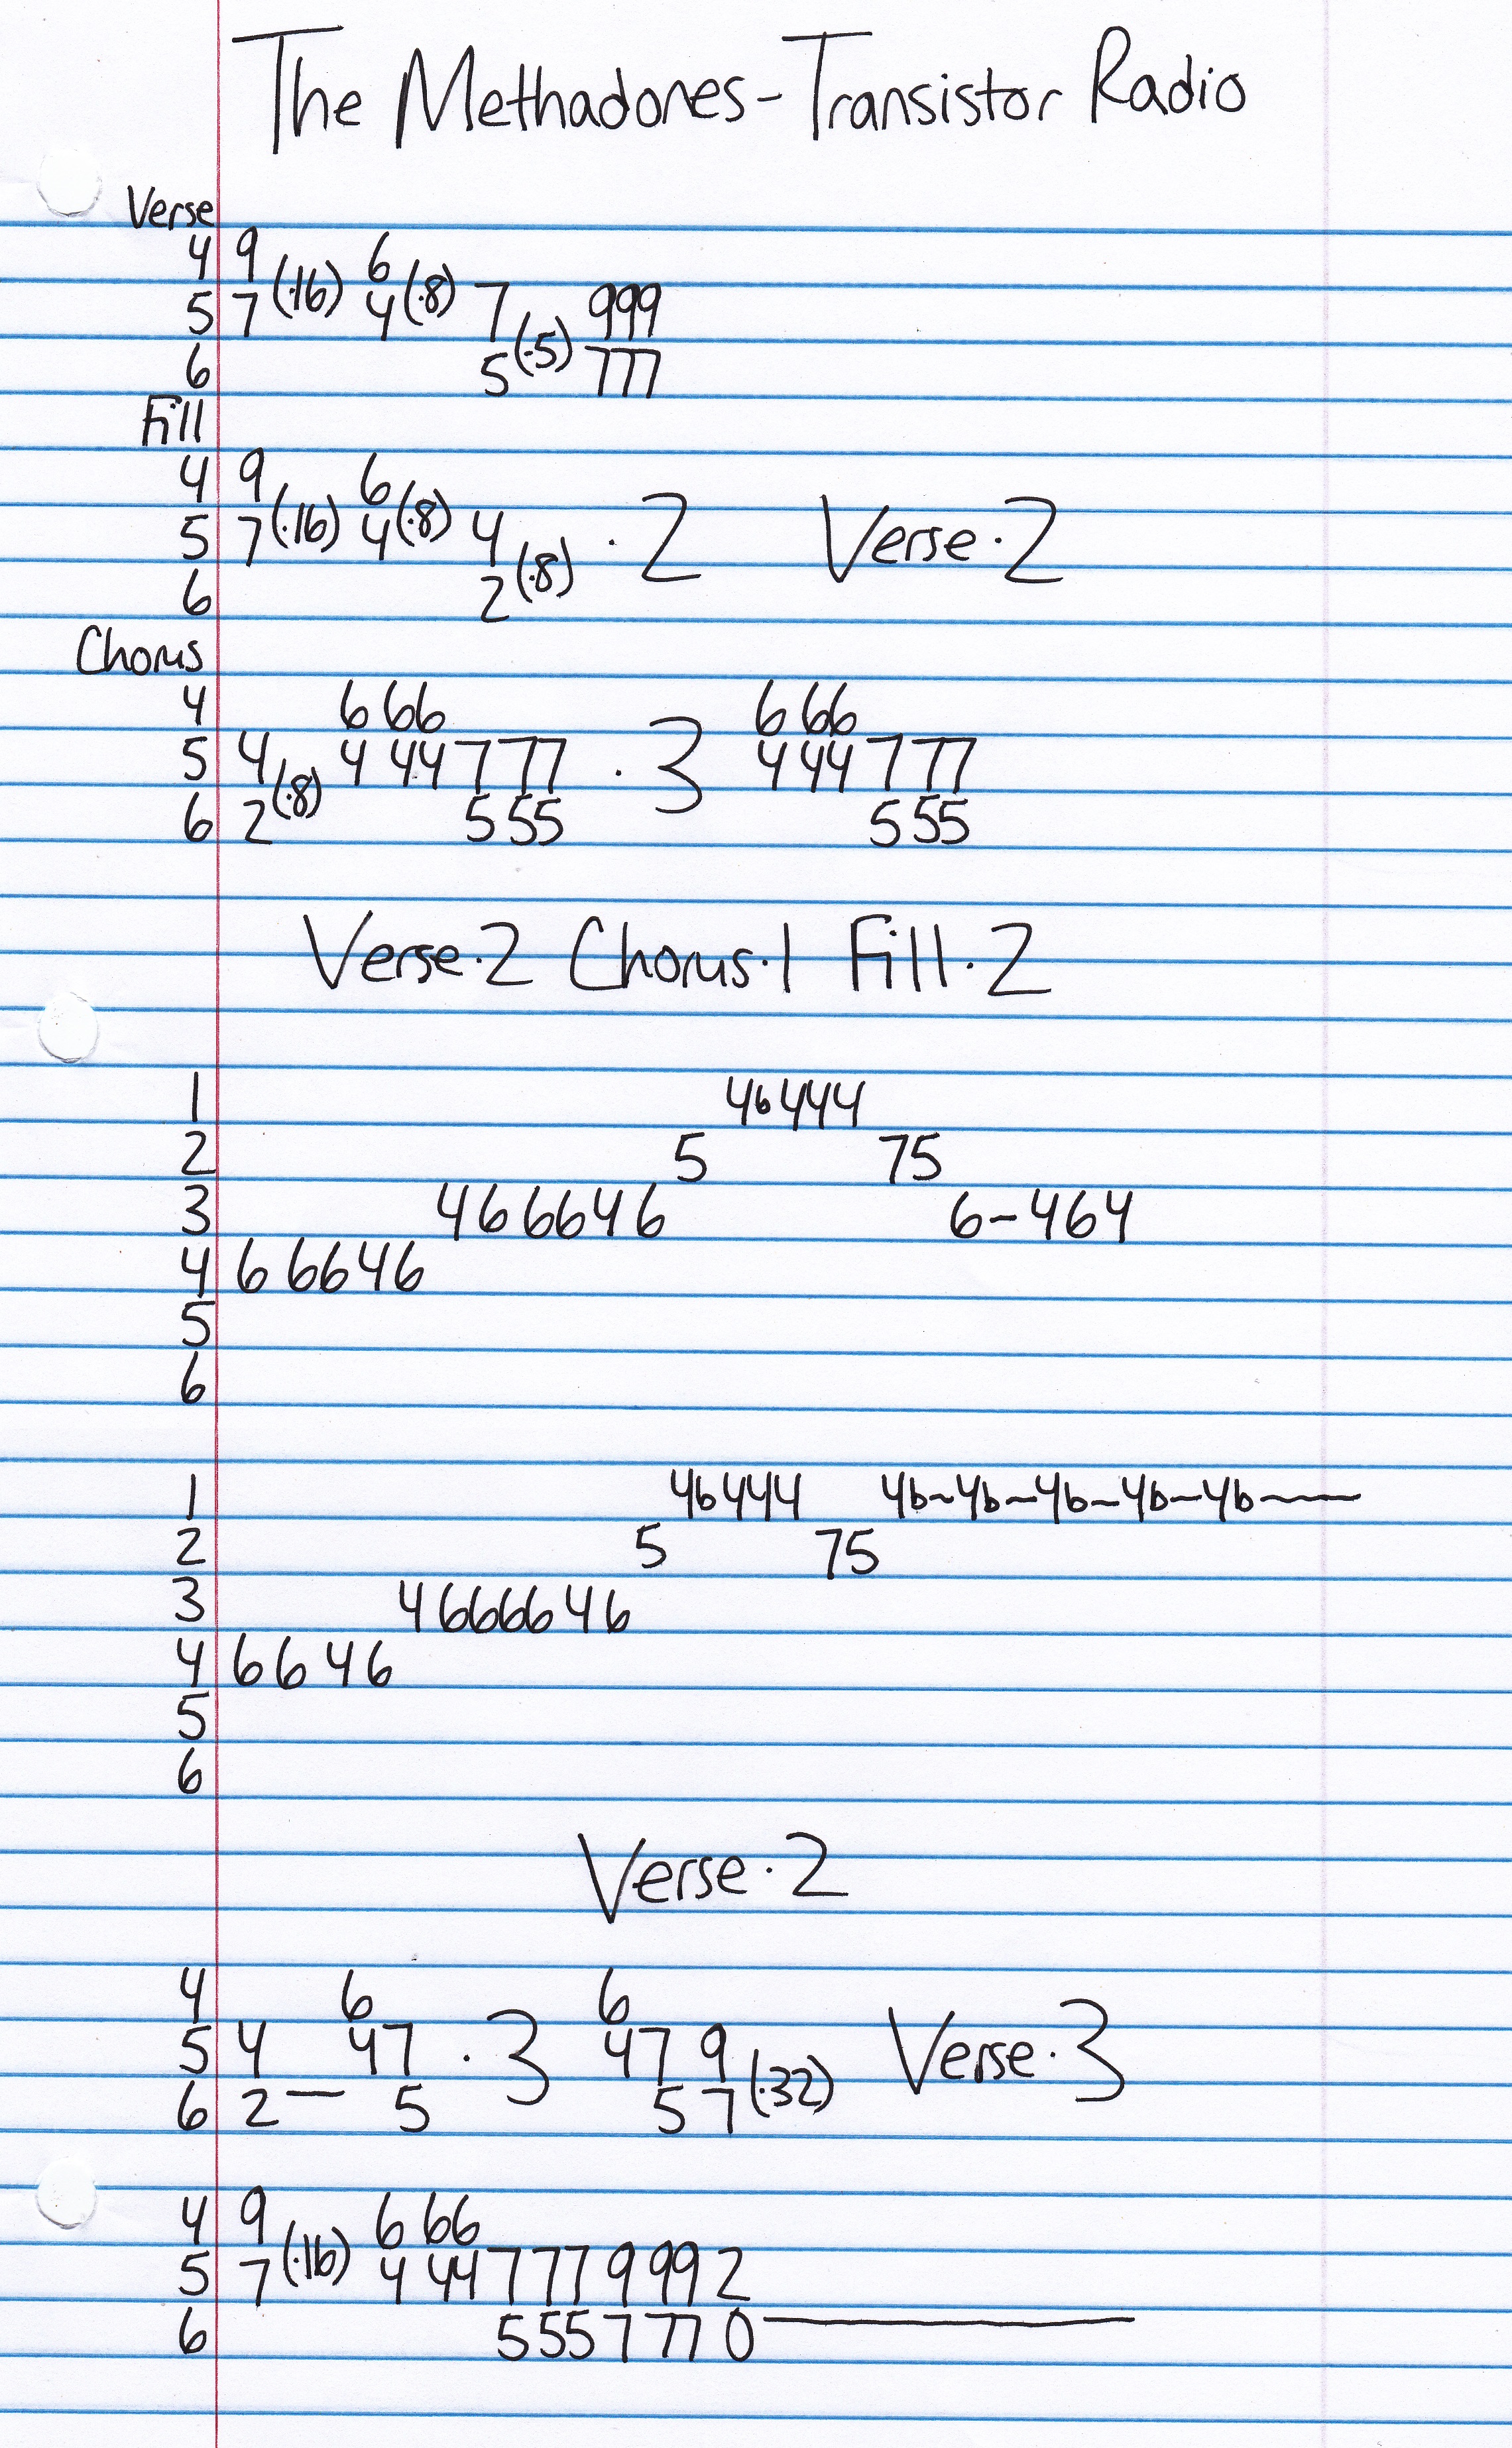 The Methadones - Transistor Radio
Verse
4 9 6
5 7 (·16) 4 (·8) 7 999
6 5 (·5) 777
Fill
4 9 6
5 7 (·16) 4 (·8) 4 · 2 Verse · 2
6 2 (·8)
Chorus
4 6 66 6 66
5 4 4 44 7 77 · 3 4 44 7 77
6 2 (·8) 5 55 5 55
Verse · 2 Chorus · 1 Fill · 2
1 4b444
2 5 75
3 4 6 6646 6-464
4 6 6646
5
6
1 4b444 4b-4b-4b-4b-4b-
2 5 75
3 4 6666 46
4 66 46
5
6
Verse · 2
4 6 6
5 4 47 · 3 47 9 Verse · 3
6 2 - 5 5 7 (·32)
4 9 6 66
5 7 (·16) 4 44 7 77 9 99 2
6 5 55 7 77 0